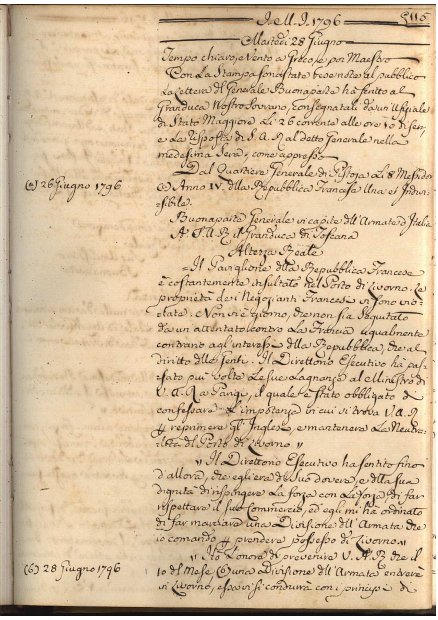 I. M. I. 1796
Martedi 28 Giugno
Tempo chiaro, e Vento a Greco, e per Maestro
Con La Stampa sono state rese note al pubblico
La Lettera del Generale Buonaparte ha scritto al
Granduca Nostro Sovrano, Consegnatali da un Ufiziale
di Stato Maggiore Li 26 corrente alle ore 10 di sera
e La Risposta di S. A. R. al detto Generale nella
medesima Sera, come appresso
Dal Quartiere Generale di Pistoja Li 8 Messidor
(a) 26 Giugno 1796
(a) Anno IV. della Repubblica Francese Una et Indivi-
sibile.
Buonaparte Generale in capite dell'Armata d'Italia
A S. A. R. il Granduca di Toscana
Altezza Reale
Il Paviglione della Repubblica Francese
è costantemente insultato nel Porto di Livorno. Le
proprietà dei Negozianti Francesi vi sono vio-
late. Non vi è giorno, che non sia segnalato
da un'attentato contro La Francia ugualmente
contrario agl'interessi della Repubblica, che al
diritto delle Genti. Il Direttorio Esecutivo ha pas-
sato più volte Le sue Lagnanze al Ministro di
V. A. R. a Parigi, il quale è stato obbligato di
confessare L'impotenza in cui si trova V. A. R.
di reprimere gl'Inglesi, e mantenere La Neutra-
lità del Porto di Livorno "
" Il Direttorio Esecutivo ha sentito fino
d'allora, che egli era di suo dovere, e della sua
dignità di rispingere La forza con La forza, di far
rispettare il suo Commercio, ed egli mi ha ordinato
di far marciare una Divisione dell'Armata che
io comando per prendere possesso di Livorno "
" Ho L'onore di prevenire V. A. R. che il
(b) 28 Giugno 1796
10 del Mese (b) una Divisione dell'Armata entrerà
in Livorno, essa vi si condurrà con i principj di